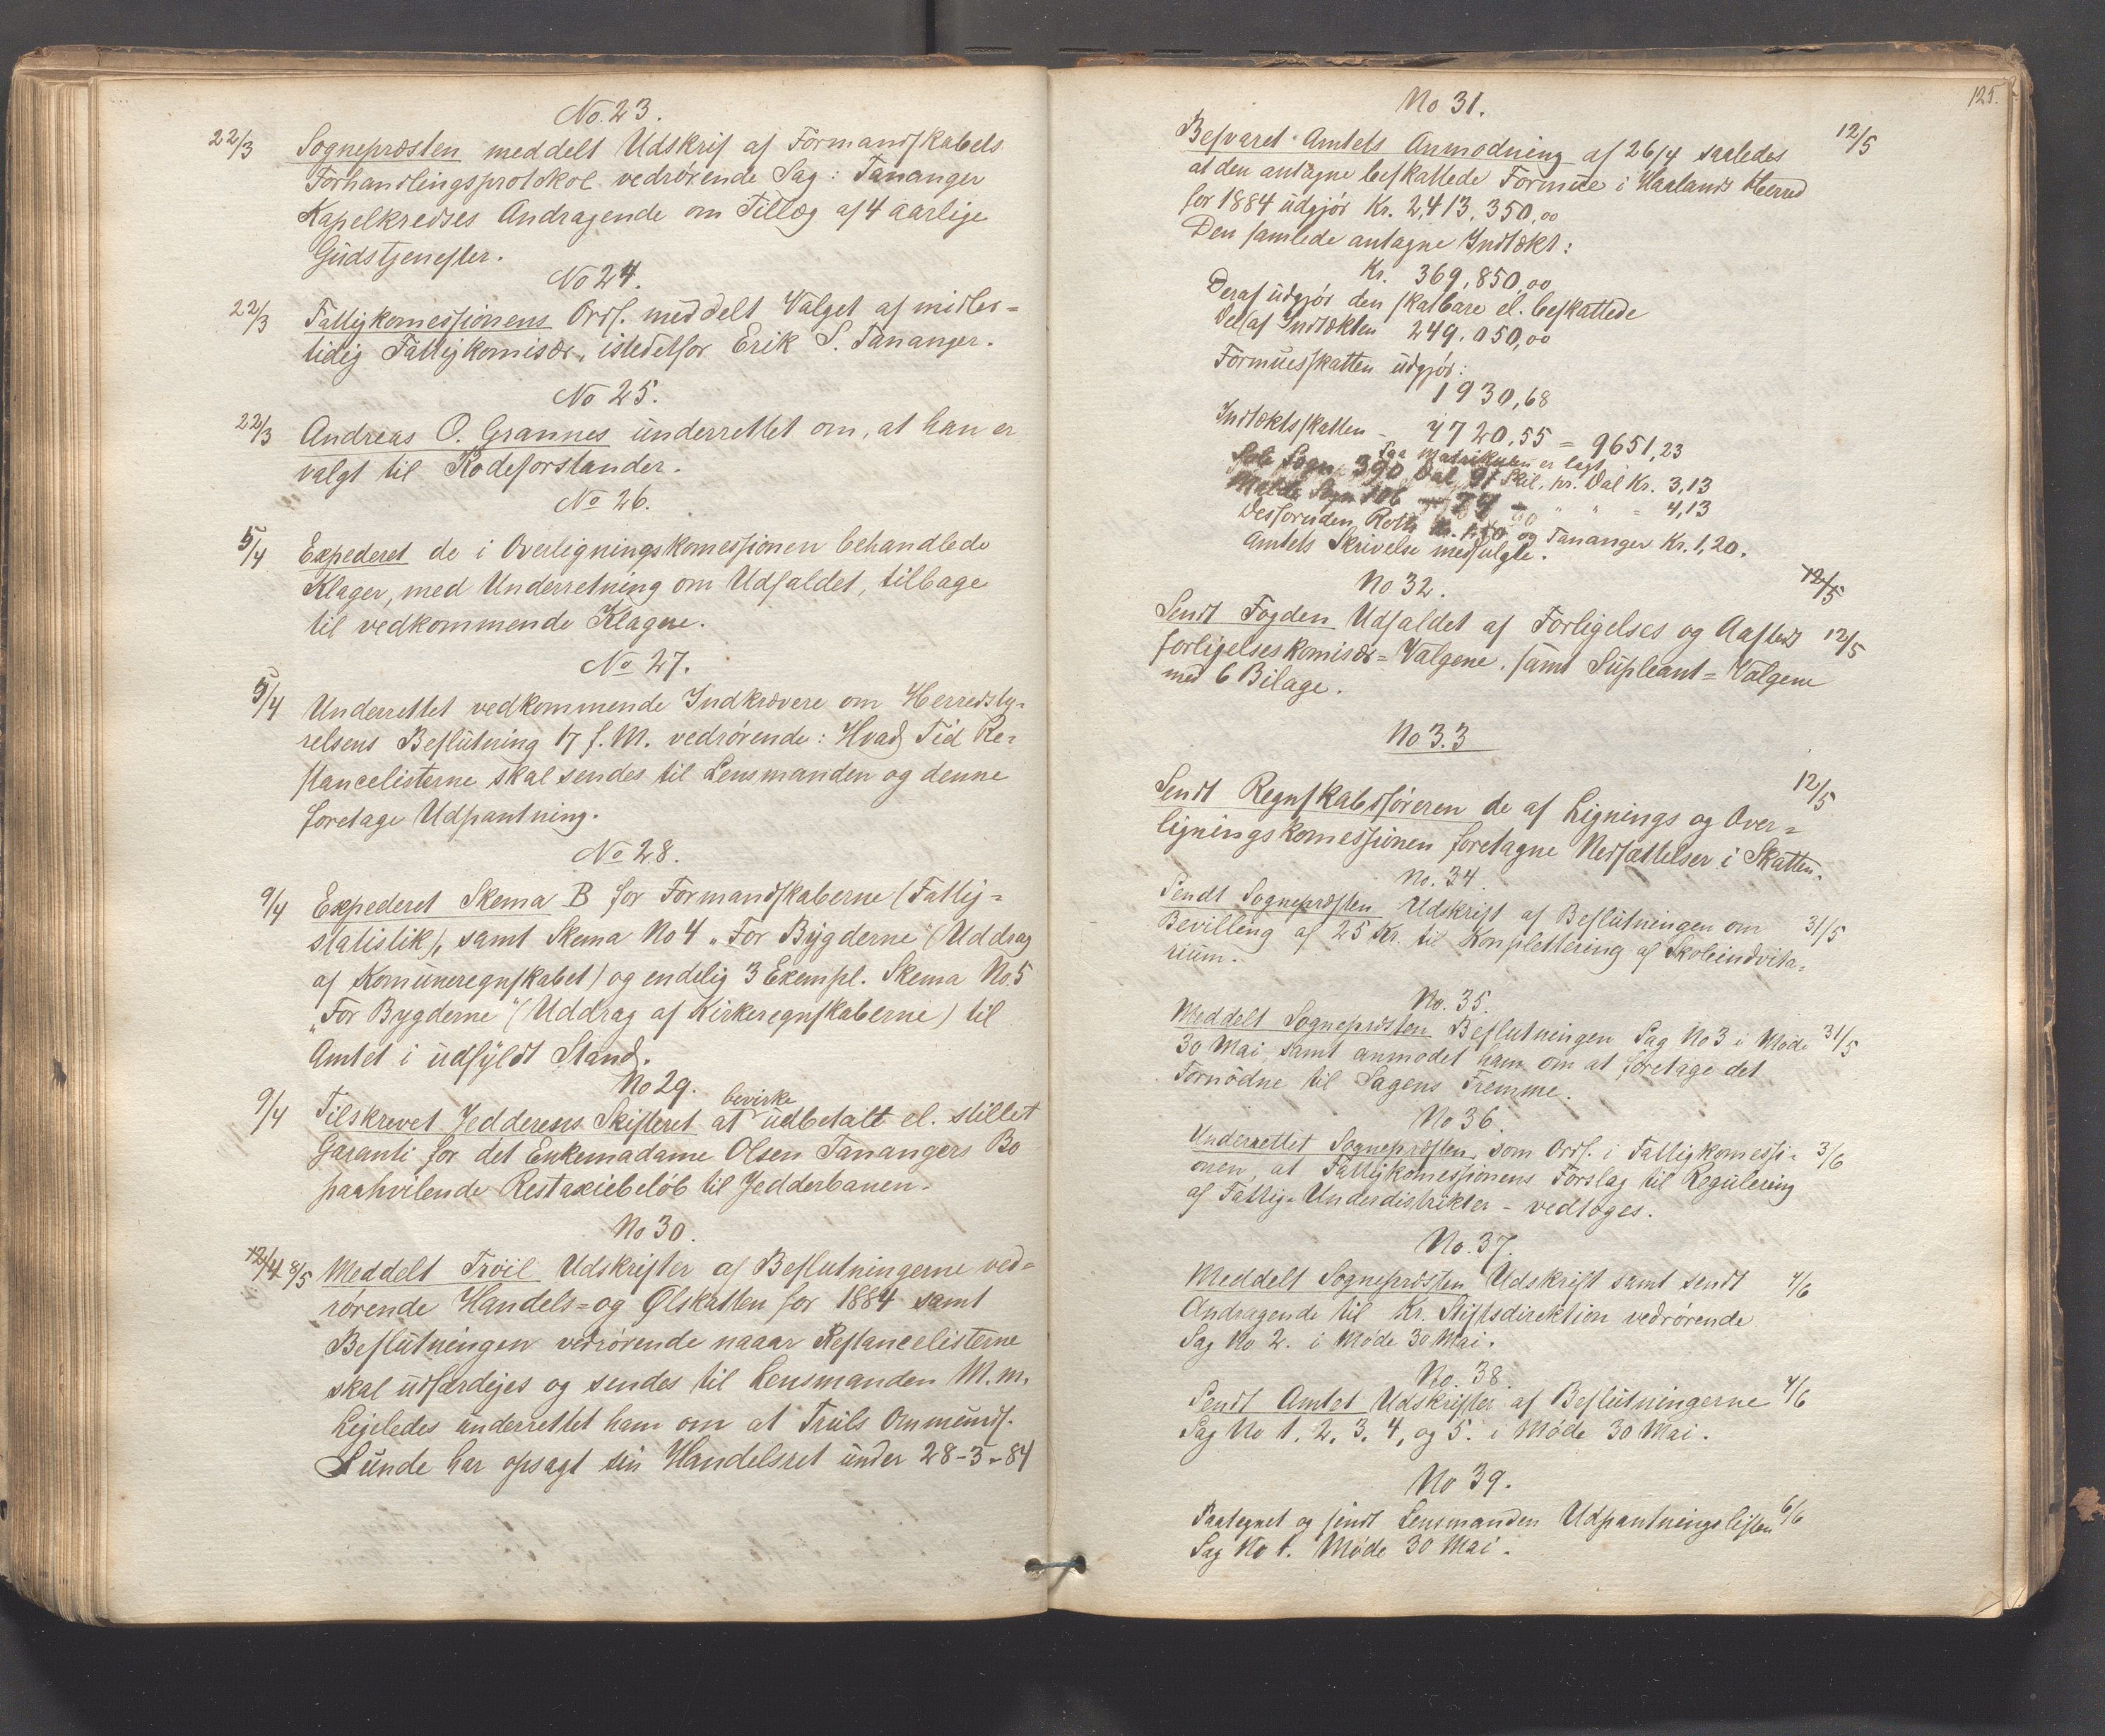 No. 23.
22/3 Sognepræsten meddelt Udskrif af Formandskabels
Forhandlingsprotokol vedrørende Sag: Tananger
Kapelkredses Andragende om Tillæg af 4 aarlige
Gudstjenester.
No 24.
22/3 Fattigkomessionens Ordf. meddelt Valget af midler=
tidig Fattigkomisær, istedetfor Erik S. Tananger.
No 25.
22/3 Andreas O. Grannes underrettet om, at han er
valgt til Rodeforstander.
No 26.
5/4 Expederet de i Overligningskomessionen behandlede
Klager, med Underretning om Udfaldet, tilbage
til vedkommende Klagere.
No 27.
5/4 Underrettet vedkommende Indkrævere om Herredsty=
relsens Beslutning 17 f. M. vedrørende: Hvad Tid Re=
stancelisterne skal sendes til Lensmanden og denne
foretage Udpantning.
No 28.
9/4 Expederet Skema B for Formandskaberne (Fattig=
statistik), samt Skema No 4 „For Bygderne" (Uddrag
af Komuneregnskabet) og endelig 3 Exempl. Skema No. 5
„For Bygderne" (Uddrag af Kirkeregnskaberne) til
Amtet i udfyldt Stand.
No 29.
bevirke
9/4 Tilskrevet Jedderens Skifteret at udbetalt el. stillet
Garanti for det Enkemadame Olsen Tanangers Bo
paahvilende Restaxiebeløb til Jedderbanen.
No 30.
12/4 8/5 Meddelt Tröil Udskrifter af Beslutningerne ved=
rørende Handels= og Ølskatten for 1884 samt
Beslutningen vedrørende naaar Restancelisterne
skal udfærdiges og sendes til Lensmanden M. m.
Ligeledes underrettet ham om at Truls Ommunds.
Sunde har opsagt sin Handelsret under 28-3-84
125.
No 31.
Besvaret Amtets Anmodning af 26/4 saaledes 12/5
at den antagne beskattede Formue i Haalands Herred
for 1884 udgjør Kr. 2,413,350,00
Den samlede antagne Indtækt:
Kr. 369,850,00
Deraf udgjør den skatbare el. beskattede
Del af Indtækten 249.050,00
Formuesskatten udgjør:
1930,68
Indtæktsskatten - 7720,55 = 9651,23
Paa Matrikulen er lagt,
Sole Sogn 390 Dal 91 Skil. pr. Dal Kr. 3,13
Sogn 106 - 74 - " " = 4,13
Desforuden Rott Kr. og Tananger Kr. 1,20.
Amtets Skrivelse medfulgte.
No 32. 12/5
Sendt Fogden Udfaldet af Forligelses og Aasteds 12/5
forligelseskomisær=Valgene. samt Supleant=Valgene
med 6 Bilage.
No 33
Sendt Regnskabsføreren de af Lignings og Over= 12/5
ligningskomessionen foretagne Nedsættelser i Skatten.
No. 34.
Sendt Sognepræsten Udskrift af Beslutningen om 31/5
Bevilling af 25 Kr. til Konplettering af Skoleindvita=
rium.
No. 35.
Meddelt Sognepræsten Beslutningen Sag No 3 i Møde 31/5
30 Mai, samt anmodet ham om at foretage det
Fornødne til Sagens Fremme.
No 36.
Underrettet Sognepræsten, som Ordf. i Fattigkomessi= 3/6
onen, at Fattigkomessionens Forslag til Regulering
af Fattig=Underdistrikter - vedtoges.
No. 37.
Meddelt Sognepræsten Udskrift samt sendt 4/6
Andragende til Kr. Stiftsdirektion vedrørende
Sag No 2. i Møde 30 Mai.
No. 38.
Sendt Amtet Udskrifter af Beslutningerne 4/6
Sag No 1, 2, 3, 4, og 5. i Møde 30 Mai.
No 39.
Paategnet og sendt Lensmanden Udpantningslisten 6/6
Sag No 1. Møde 30 Mai.